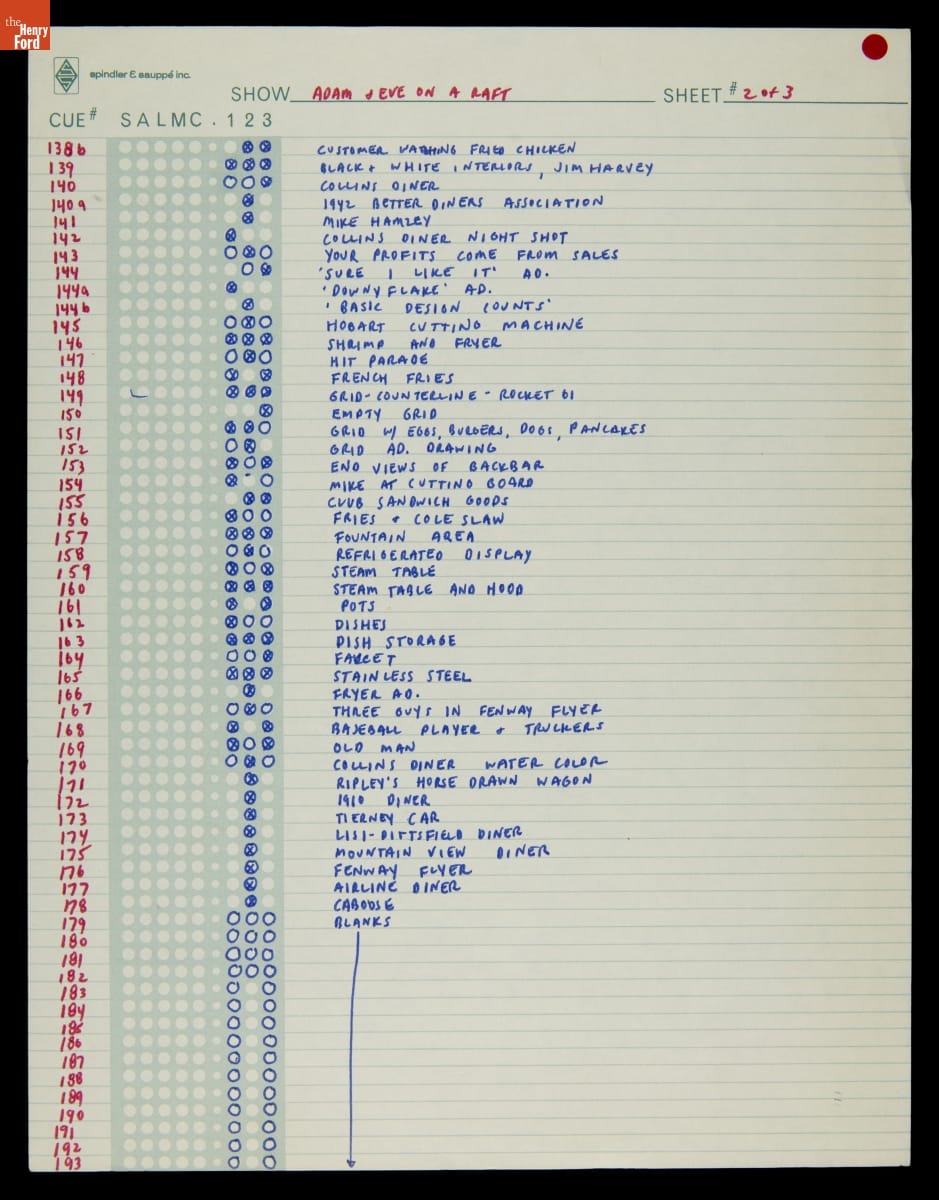 the
Henry
Ford
spindler & sauppé inc.
SHOW ADAM & EVE ON A RAFT SHEET # 2 of 3
CUE # S A L M C . 1 2 3
138b CUSTOMER EATING FRIED CHICKEN
139 BLACK & WHITE INTERIORS, JIM HARVEY
140 COLLINS DINER
140a 1942 BETTER DINERS ASSOCIATION
141 MIKE HAMZEY
142 COLLINS DINER NIGHT SHOT
143 YOUR PROFITS COME FROM SALES
144 'SURE I LIKE IT' AD.
144a 'DOWNY FLAKE' AD.
144b 'BASIC DESIGN COUNTS'
145 HOBART CUTTING MACHINE
146 SHRIMP AND FRYER
147 HIT PARADE
148 FRENCH FRIES
149 GRID-COUNTERLINE - ROCKET 61
150 EMPTY GRID
151 GRID W/ EGGS, BURGERS, DOGS, PANCAKES
152 GRID AD. DRAWING
153 END VIEWS OF BACKBAR
154 MIKE AT CUTTING BOARD
155 CLUB SANDWICH GOODS
156 FRIES & COLE SLAW
157 FOUNTAIN AREA
158 REFRIGERATED DISPLAY
159 STEAM TABLE
160 STEAM TABLE AND HOOD
161 POTS
162 DISHES
163 DISH STORAGE
164 FAUCET
165 STAINLESS STEEL
166 FRYER AD.
167 THREE GUYS IN FENWAY FLYER
168 BASEBALL PLAYER & TRUCKERS
169 OLD MAN
170 COLLINS DINER WATER COLOR
171 RIPLEY'S HORSE DRAWN WAGON
172 1910 DINER
173 TIERNEY CAR
174 LISI-PITTSFIELD DINER
175 MOUNTAIN VIEW DINER
176 FENWAY FLYER
177 AIRLINE DINER
178 CABOOSE
179 BLANKS
180
181
182
183
184
185
186
187
188
189
190
191
192
193